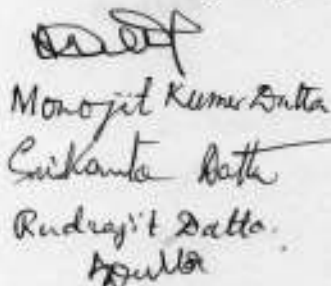 Monojit Kumar Dutta
Srikanta Datta
Rudrajit Datta.